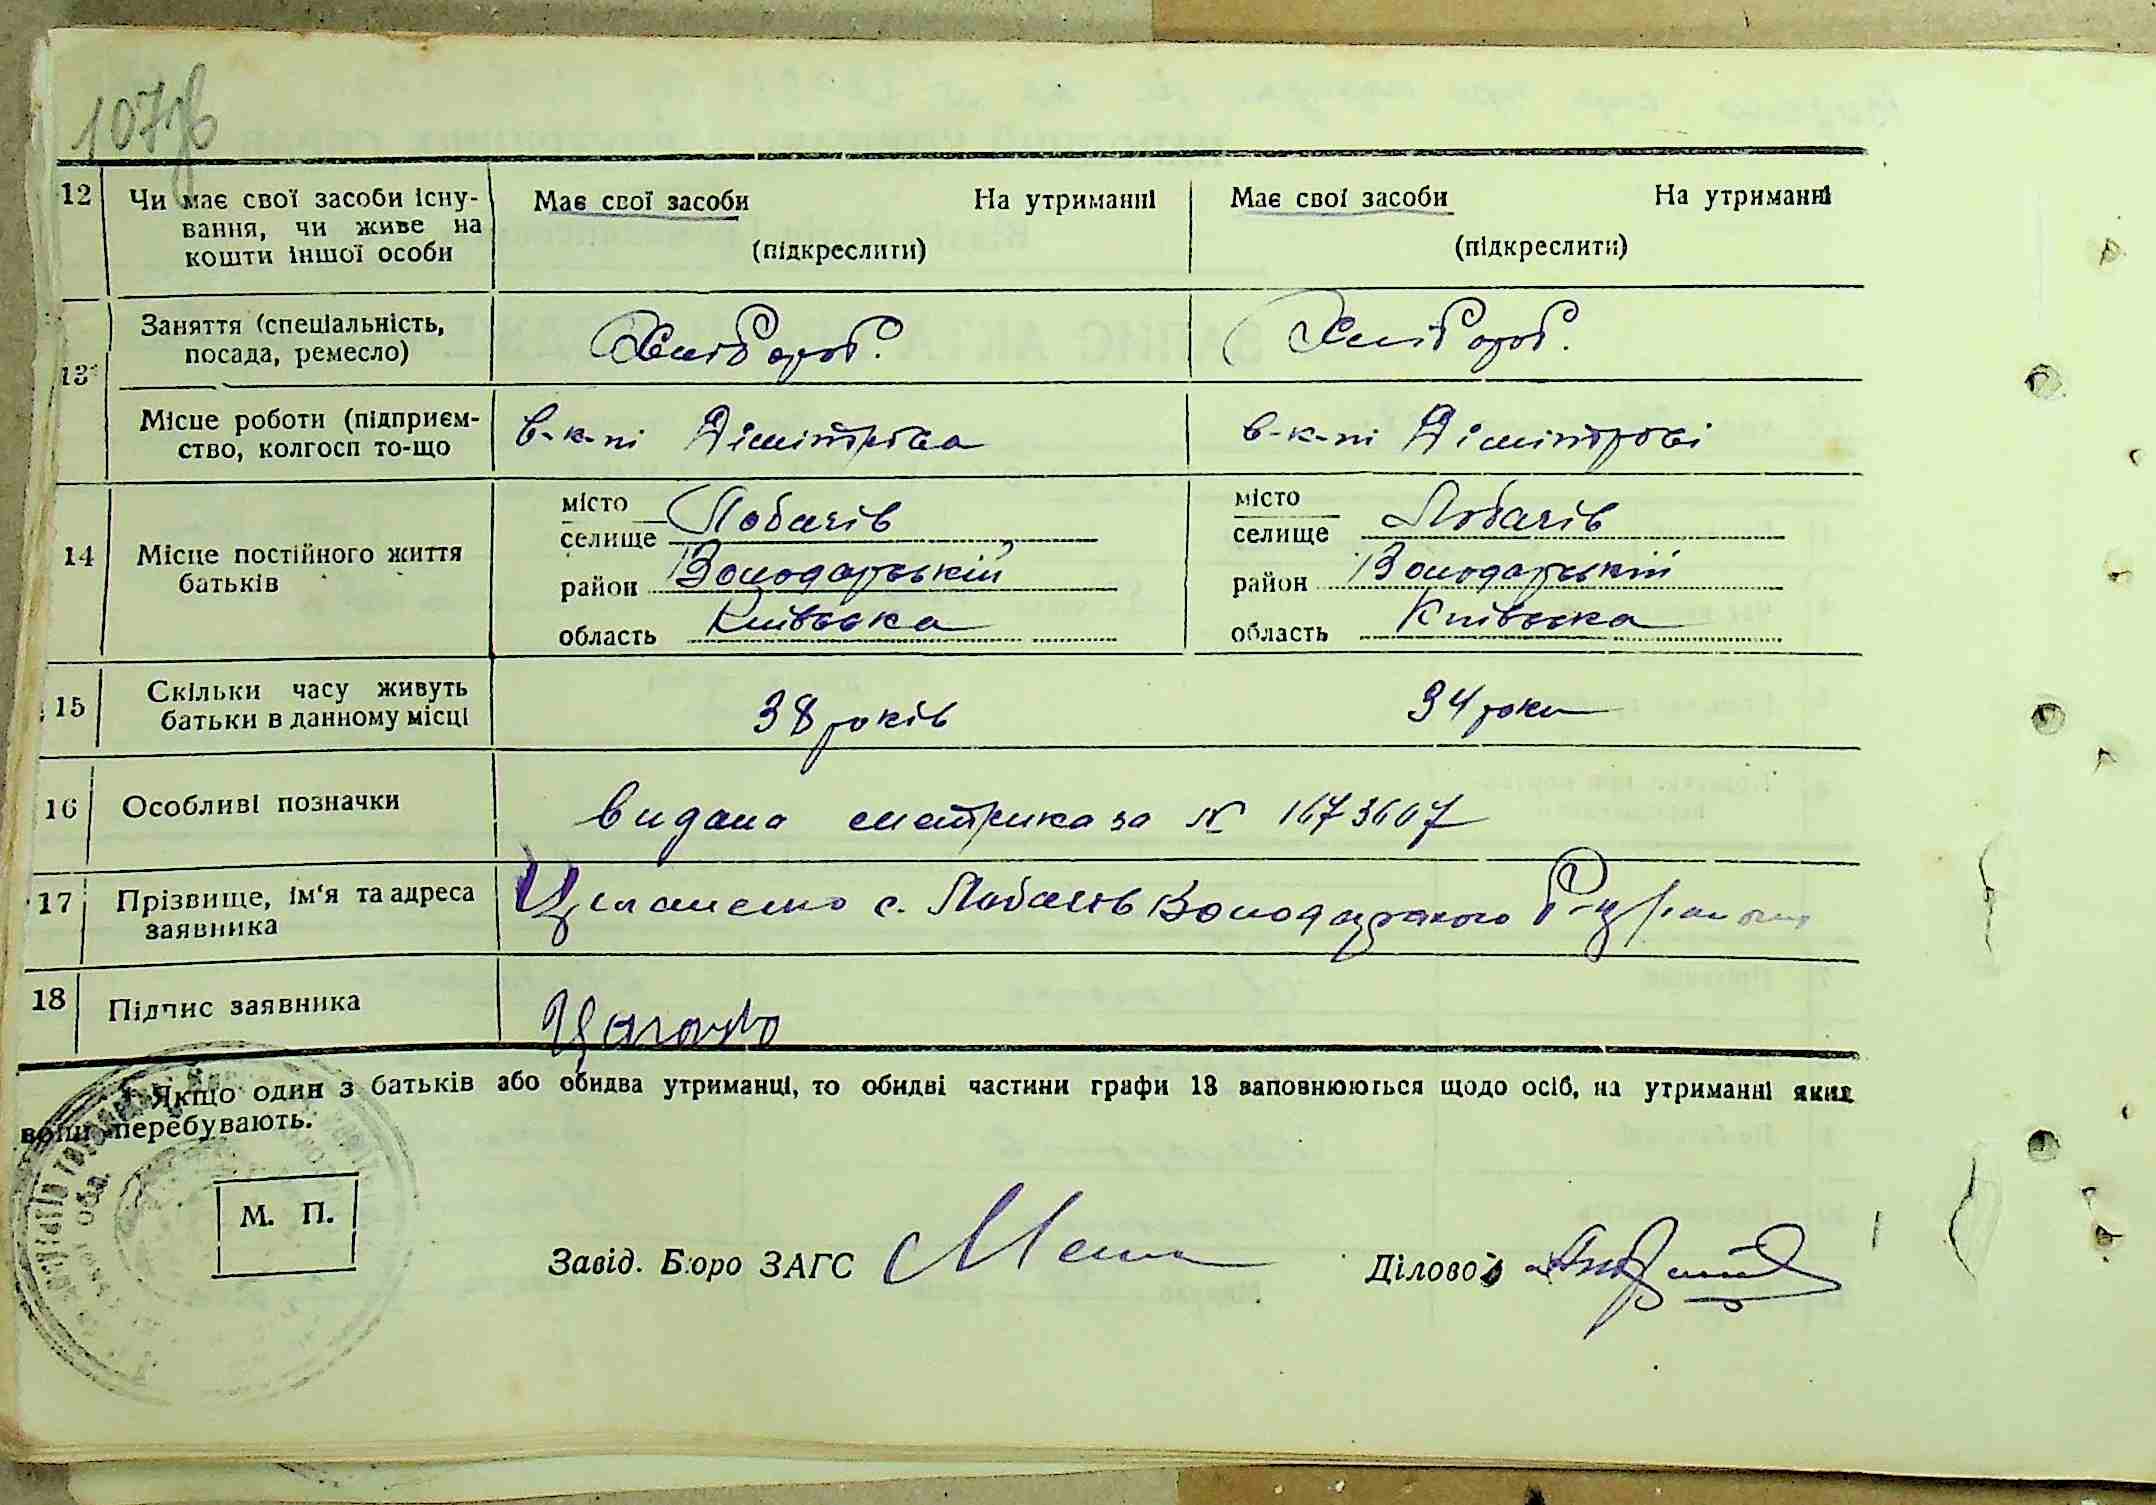 107зв
12 Чи має свої засоби існу- Має свої засоби На утриманні Має свої засоби На утриманні
вання, чи живе на (підкреслити) (підкреслити)
кошти іншої особи
13 Заняття (спеціальність, Хлібороб. Хлібороб.
посада, ремесло)
Місце роботи (підприєм- в-к-пі Дімітрова в-к-пі Дімітрові
ство, колгосп то-що
14 Місце постійного життя
батьків
місто місто
селище Лобачів селище Лобачів
район Володарський район Володарський
область Київська область Київська
15 Скільки часу живуть 38 років 34 роки
батьки в данному місці
16 Особливі позначки видана метрика за № 1673607
17 Прізвище, ім'я та адреса с. Лобачів Володарського
заявника
18 Підпис заявника
Якщо один з батьків або обидва утриманці, то обидві частини графи 13 заповнюються щодо осіб, на утриманні яких
вони перебувають.
М. П.
Завід. Бюро ЗАГС Діловод